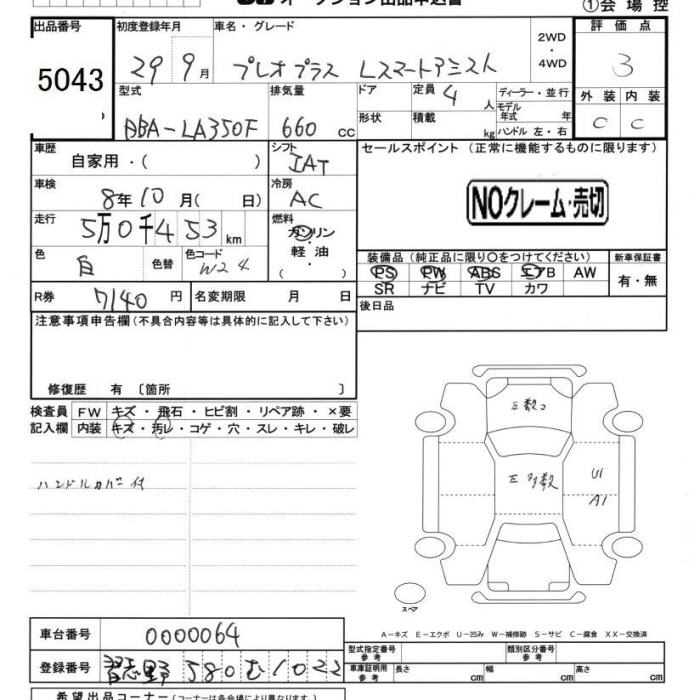 オークション出品申込書 ①会場控
出品番号 初度登録年月 車名・グレード 2WD・4WD 評価点
5043 29 9月 プレオプラス Lスマートアシスト 3
型式 排気量 ドア 定員 4人 ディーラー・並行 外装 内装
DBA-LA350F 660cc 形状 積載 kg モデル年式 年 ハンドル 左・右 C C
車歴 自家用・( ) シフト IAT セールスポイント (正常に機能するものに限ります)
車検 8年10月( 日) 冷房 AC NOクレーム・売切
走行 5万0千453km 燃料 ガソリン・軽油・( )
色 白 色替 色コード W24 装備品 (純正品に限り〇をつけてください) 新車保証書
PS PW ABS エアB AW 有・無
SR ナビ TV カワ
R券 7140円 名変期限 月 日 後日品
注意事項申告欄 (不具合内容等は具体的に記入して下さい)
修復歴 有 〔箇所 〕
検査員 FW キズ・飛石・ヒビ割・リペア跡・×要
記入欄 内装 キズ・汚レ・コゲ・穴・スレ・キレ・破レ
ハンドルカバー付
エ数コ
エ多数
U1
A1
スペア
A-キズ E-エクボ U-凹み W-補修跡 S-サビ C-腐食 XX-交換済
車台番号 0000064 型式指定番号 参考 類別区分番号 参考
登録番号 習志野 580 む1022 車庫証明用 参考 長さ cm 幅 cm 高さ cm
希望出品コーナー (コーナーは各会場により異なります。)